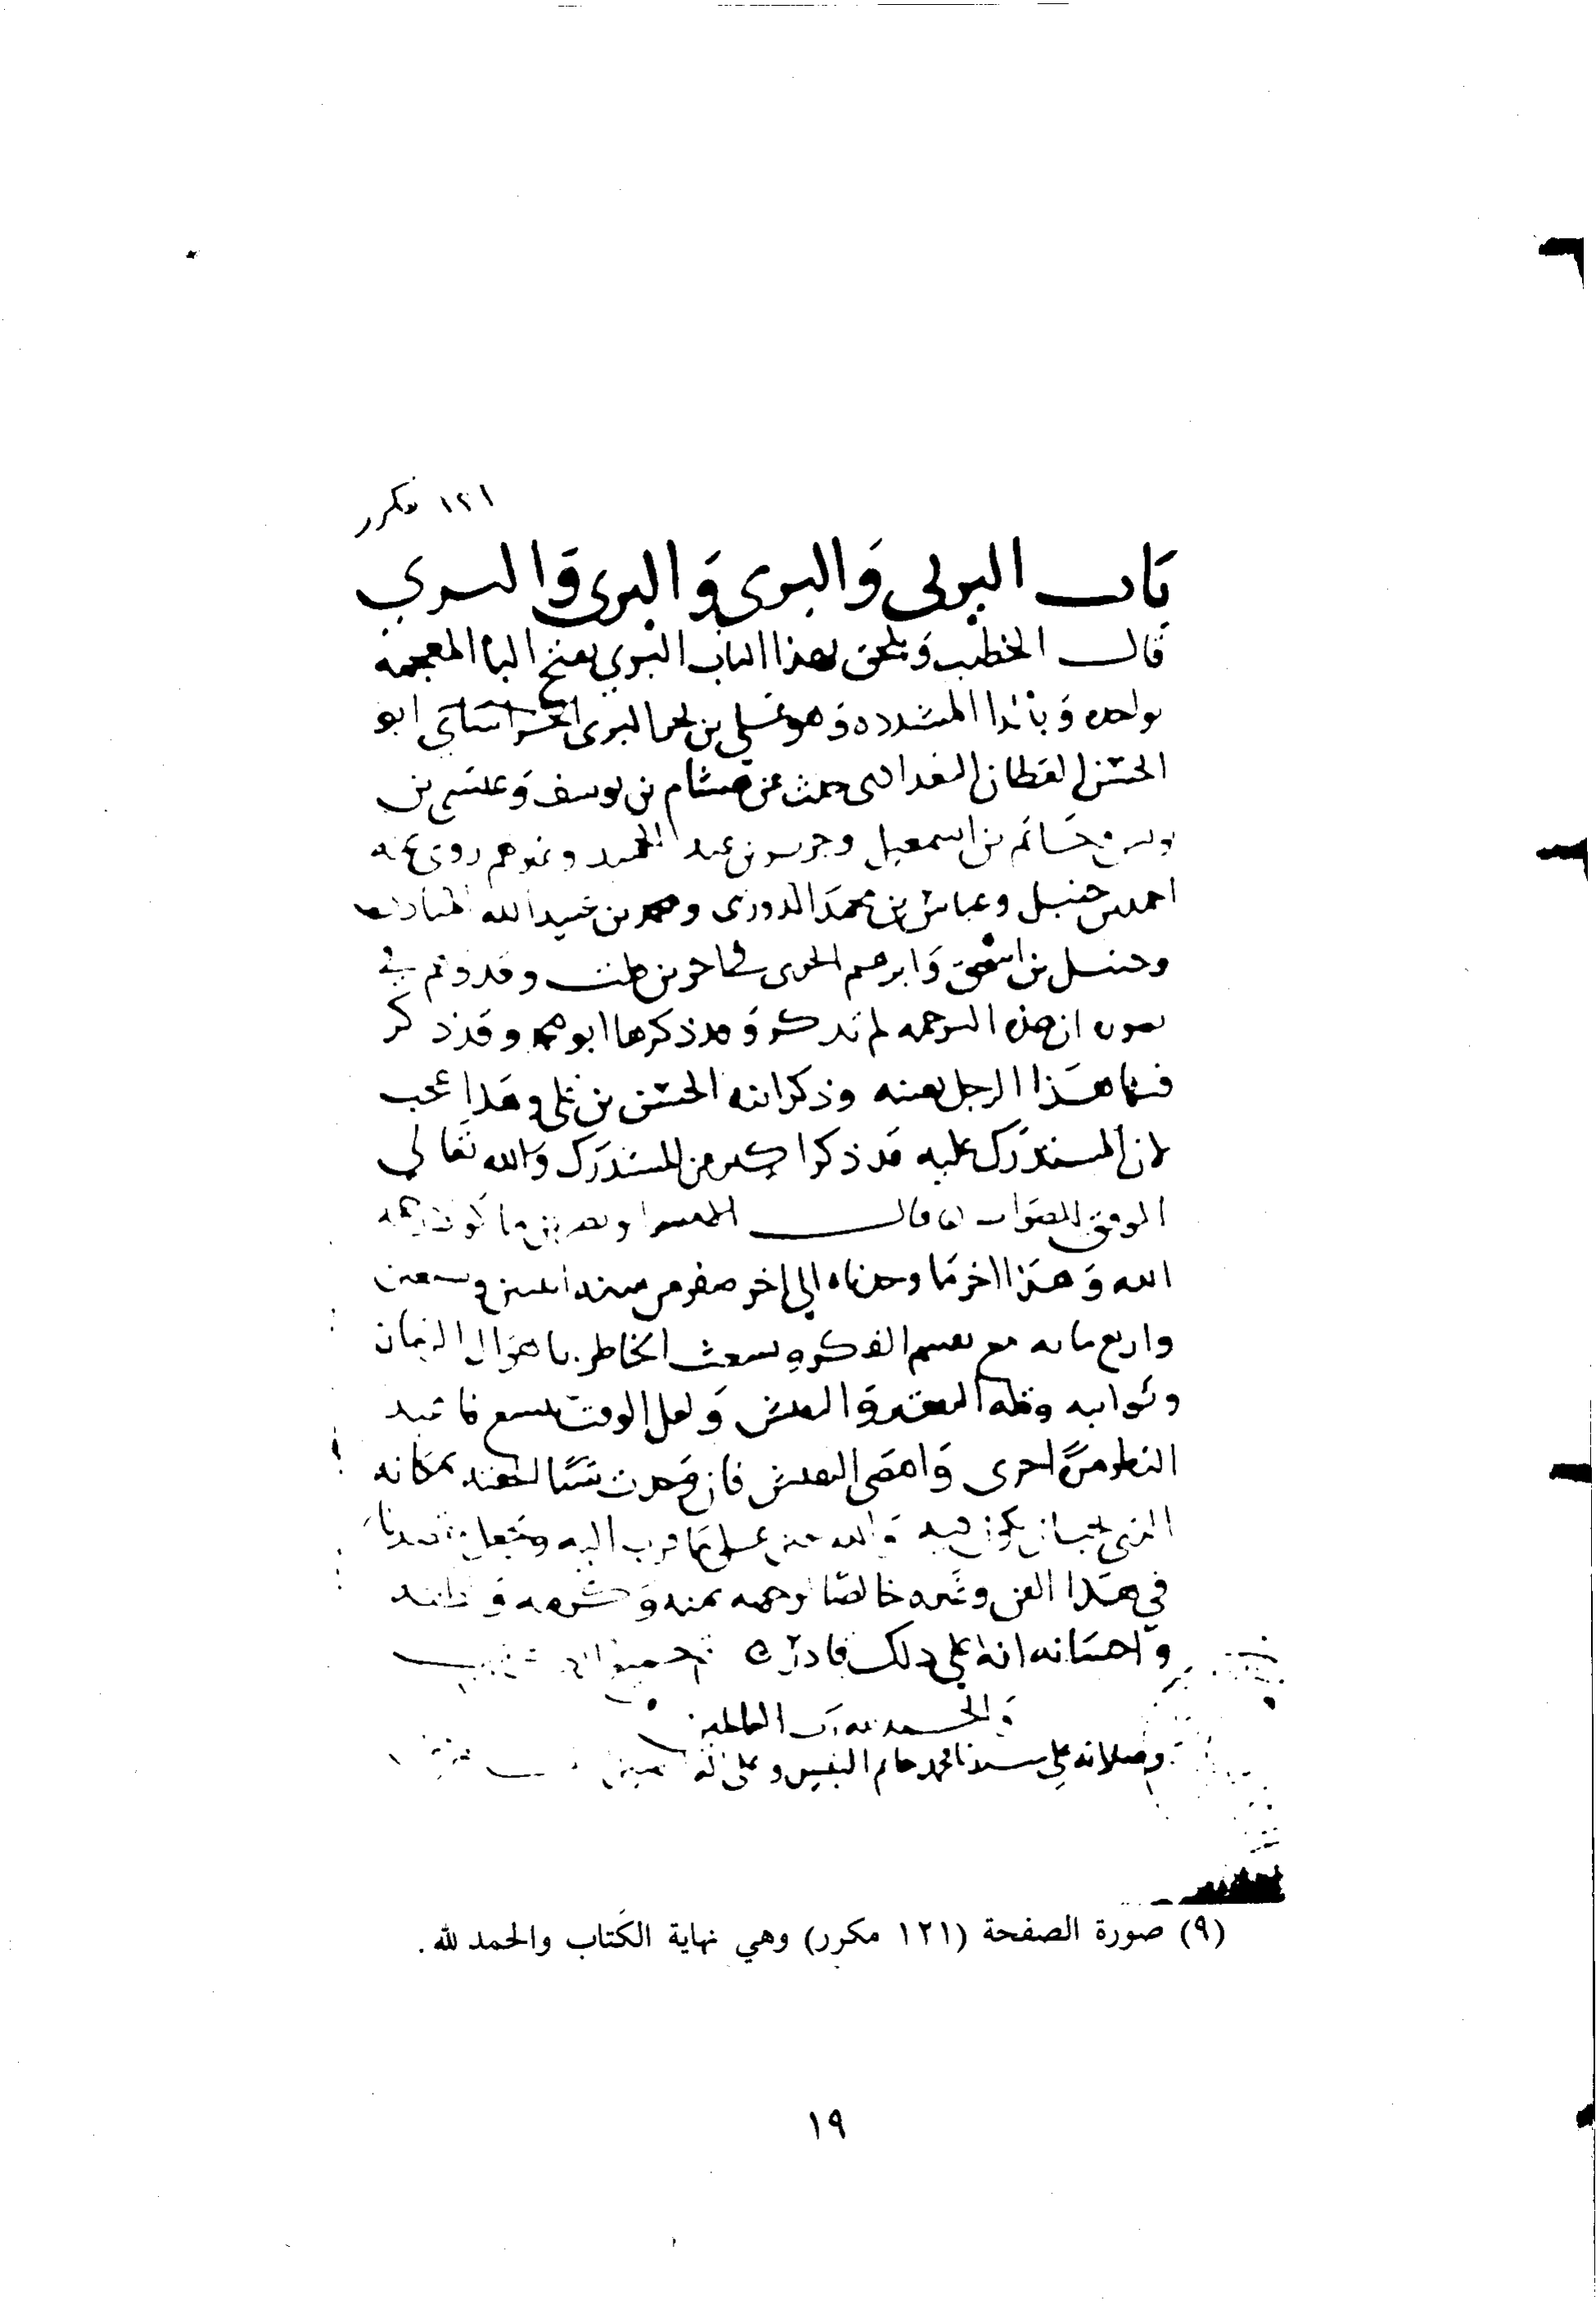 ١٢١ مكرر
باب البرتي والبري والبري والسري
قال الخطيب ويلحق بهذا الباب البري بفتح الباء المعجمة
بواحده وبالرا المشدده وهو علي بن بحر البري ابو
الحسن القطان البغدادي حدث عن هشام بن يوسف وعيسى بن
يونس وحاتم بن اسمعيل وجرير بن عبد الحميد ونحوهم روى عنه
احمد بن حنبل وعباس بن محمد الدوري ومحمد بن عبيد الله المنادي
وحنبل بن اسحق وابرهيم الحربي في اخرين قلت وقد وهم في
ان هذه الترجمه لم تذكر وقد ذكرها ابو محمد وقد ذكر
فيها هذا الرجل بعينه وذكر ابنه الحسن بن علي وهذا عجب
لان المستدرك عليه قد ذكر اكثر من المستدرك والله تعالى
الموفق للصواب قال بن ماكولا رحمه
الله وهذا اخر ما وجدناه الى اخر صفر من سنه اثنتين وسبعين
واربع مايه مع تقسم الفكر وتشعث الخاطر باهوال الزمان
ونوايبه وقله والتفتيش ولعل الوقت يتسع فاعيد
النظر مرة اخرى التفتيش فان وجدت شيئا الحقته بمكانه
الذي يجب ان يكون فيه والله يعين على ما قرب اليه ويجعل
في هذا الفن وغيره خالصا لوجهه بمنه
واحسانه انه على ذلك قادر
والحمد لله رب العالمين
وصلاته على سيدنا محمد خاتم النبيين وعلى اله
(٩) صورة الصفحة (١٢١ مكرر) وهي نهاية الكتاب والحمد لله.
١٩